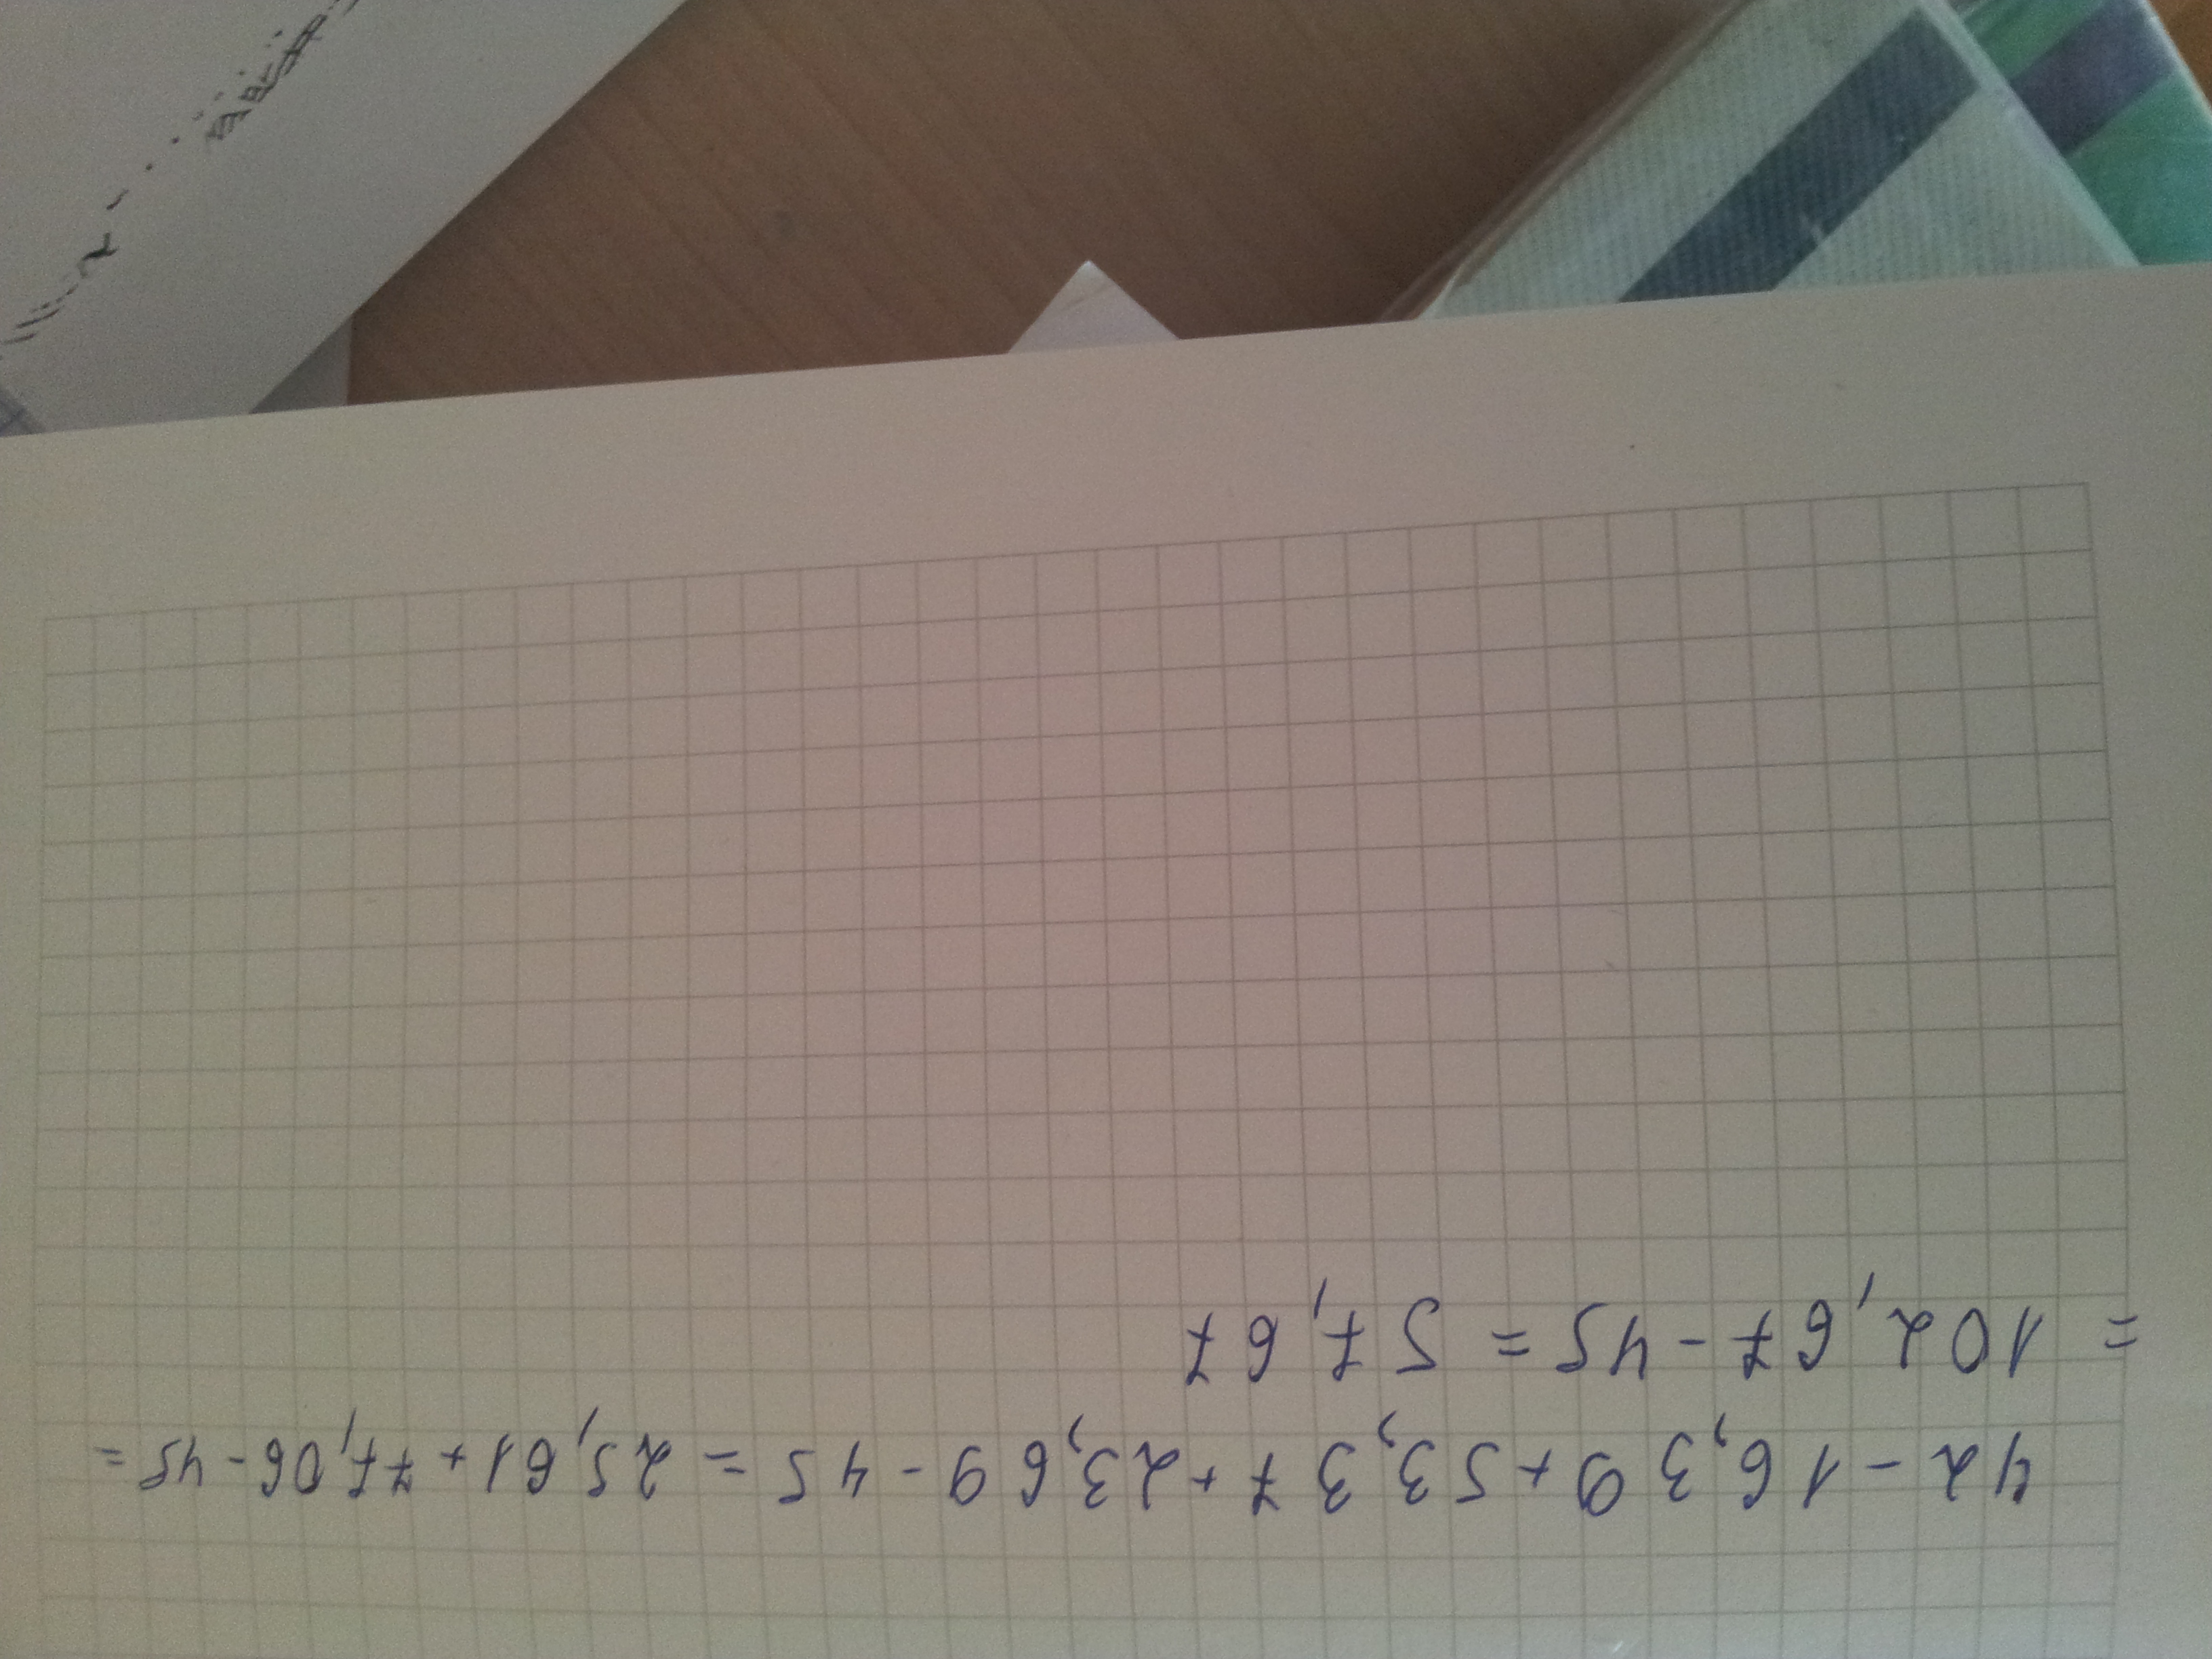 42-16,39+53,37+23,69-45=25,61+77,06-45=
=102,67-45=57,67